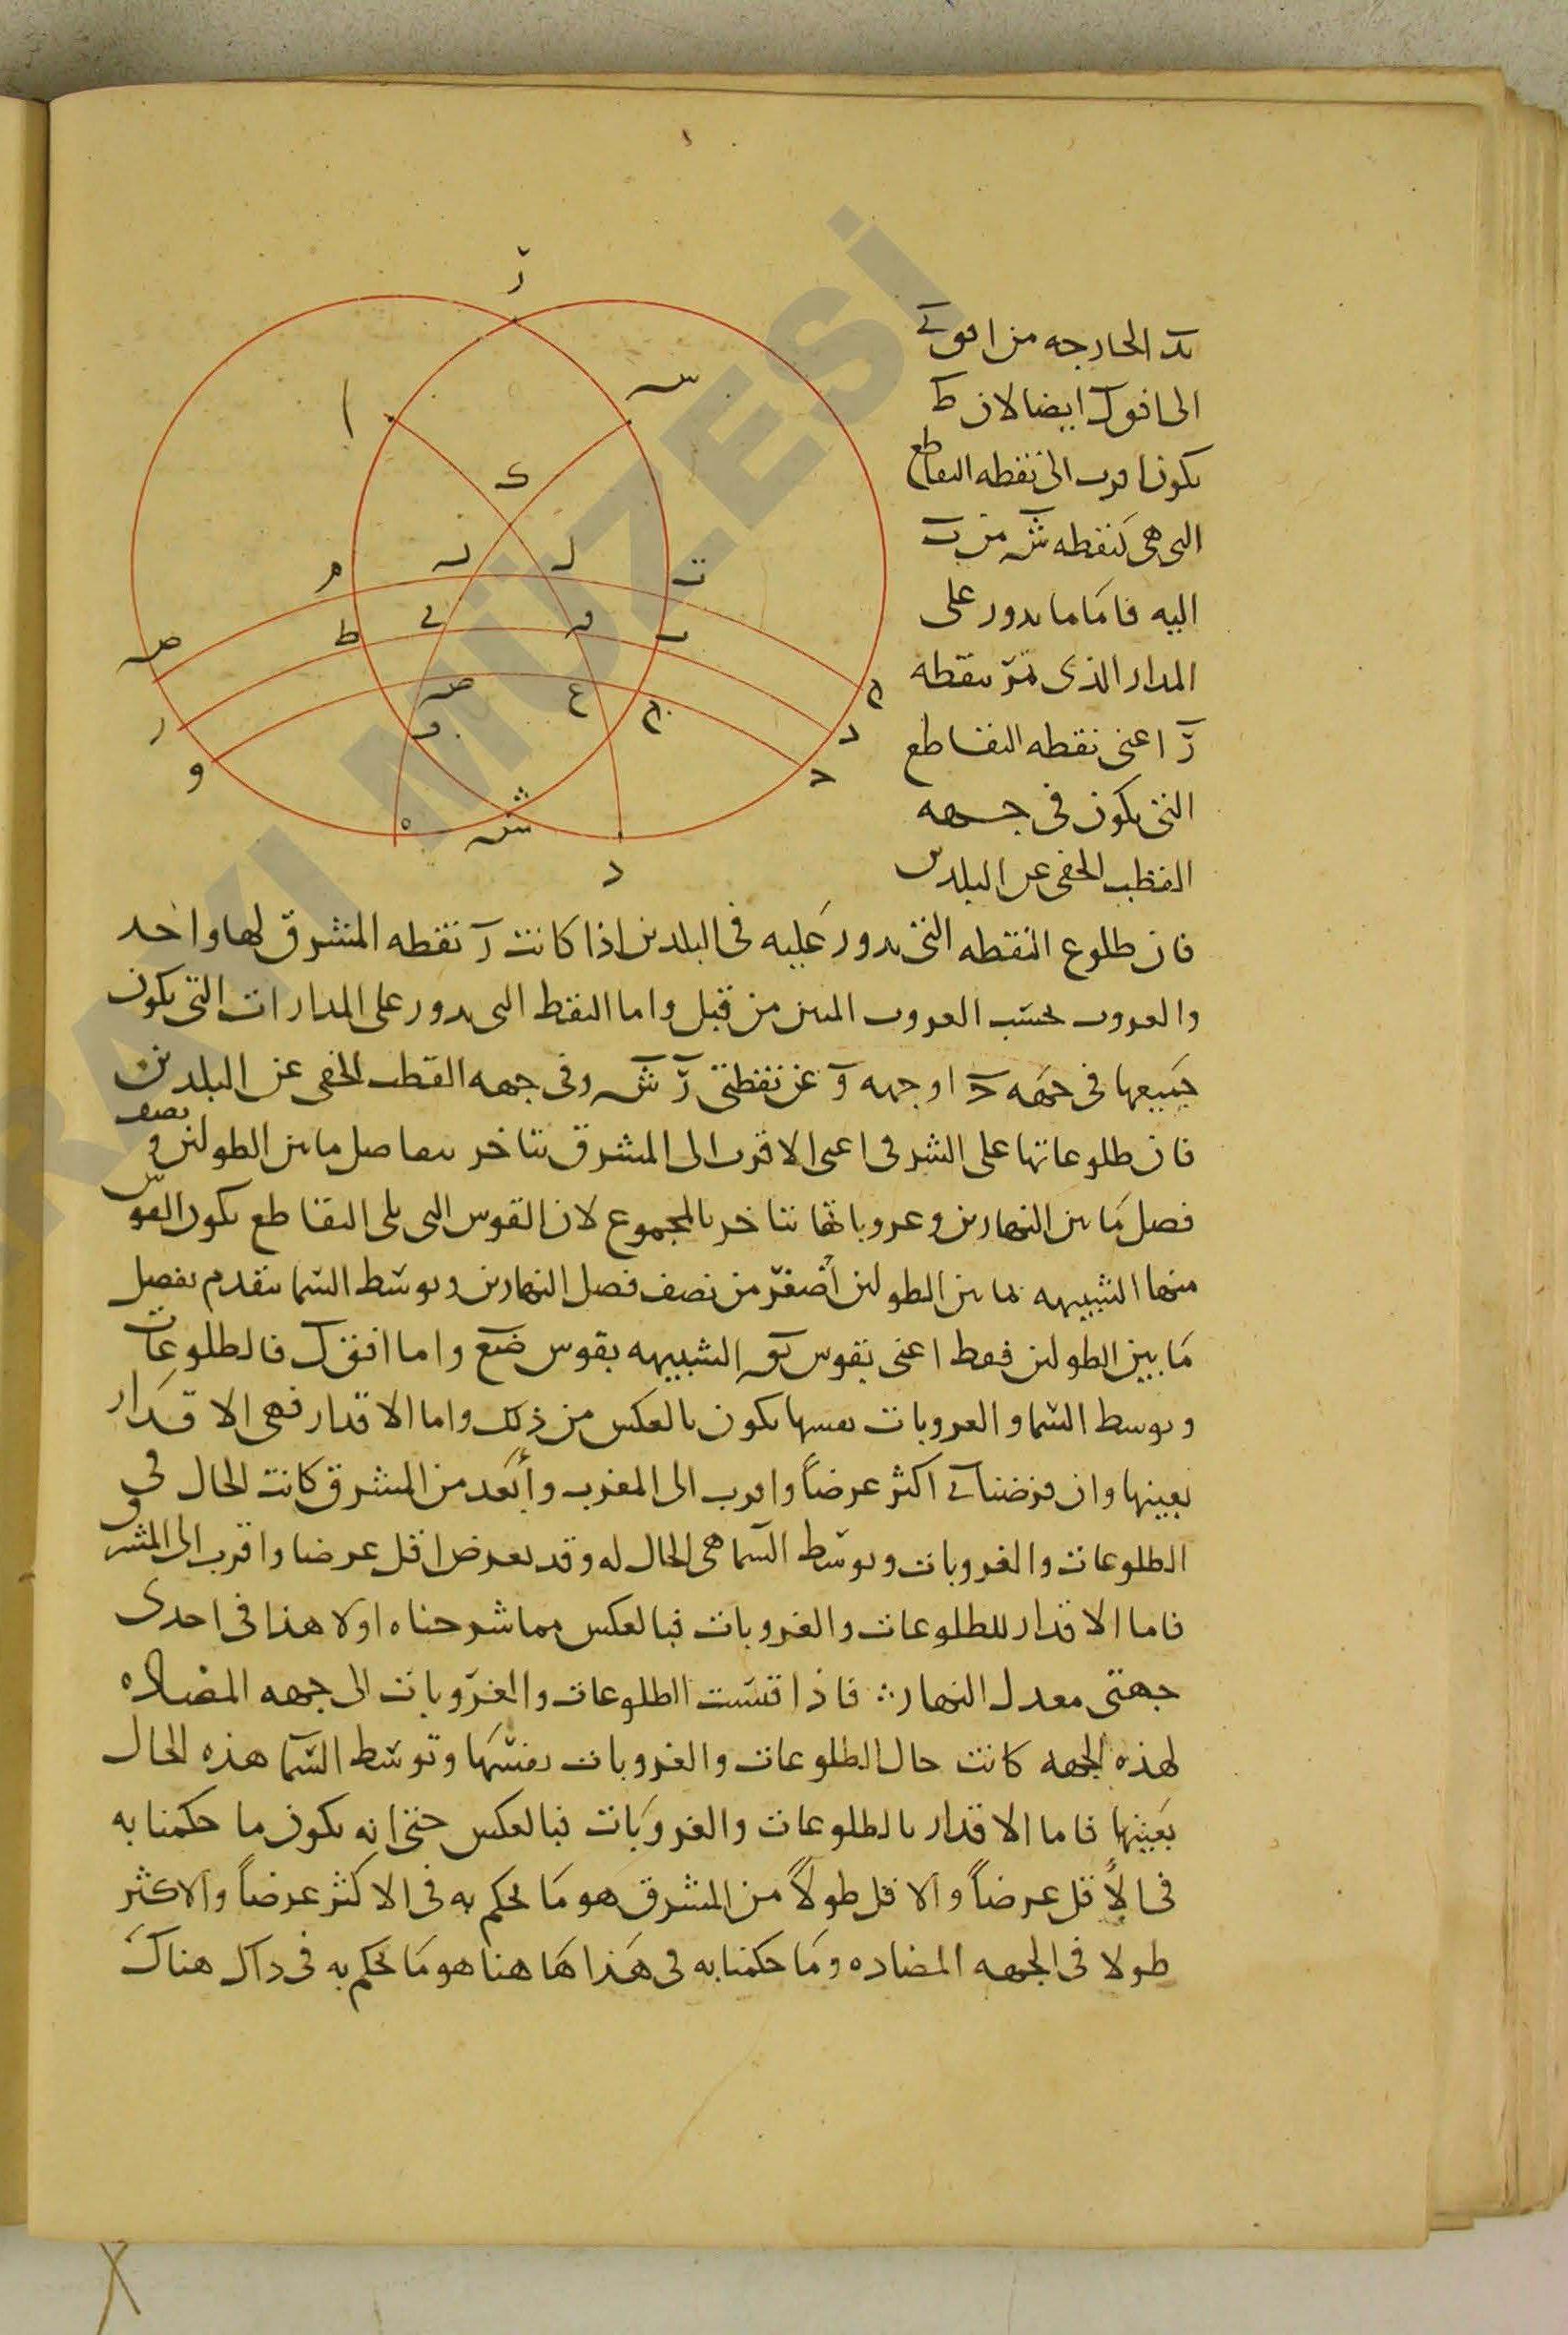 ر
س
ا
ك
م
ں
ل
ت
ص
ط
ى
ں
ر
ص
ع
و
ح
د
ه
ش
د
ىد الخارجه من افق ى
الى افق ك ايضا لان ط
ىكون اقرب الى نقطه التقاطع
التى هى كنقطه ش من ب
اليه فاما ما ىدور على
المدار الذى تمر بنقطه
ر اعنى نقطه التقاطع
التى ىكون فى جهه
القطب الخفى عن البلدىن
فان طلوع النقطه التى ىدور عليه فى البلدىن اذا كانت ر نقطه المشرق لهما واحد
والغروب بحسب الغروب المبىن من قبل واما النقط التى ىدور على المدارات التى ىكون
جميعها فى جهه د او جهه و عن نقطتى ر ش وفى جهه القطب الخفى عن البلدىن
فان طلوعاتها على الشرقى اعنى الاقرب الى المشرق تتاخر بتفاضل ما بىن الطولىن ونصف
فصل ما بىن النهارىن وغروباتها تتاخر بالمجموع لان القوس التى ىلى التقاطع ىكون القوس
منها الشبيهه بما بىن الطولىن اصغر من نصف فصل النهارىن وتوسط السما ىتقدم بفصل
ما بين الطولىن فقط اعنى بقوس الشبيهه بقوس ضع واما افق ك فالطلوعات
وتوسط السما والغروبات نفسها ىكون بالعكس من ذلك واما الاقدار فهى الاقدار
بعينها وان فرضنا ى اكثر عرضاً واقرب الى المغرب وأبعد من المشرق كانت الحال فى
الطلوعات والغروبات وتوسط السما هى الحال له وقد ىعرض اقل عرضا واقرب الى المشرق
فاما الاقدار للطلوعات والغروبات فبالعكس مما شرحناه اولا هذا فى احدى
جهتى معدل النهار ∴ فاذا قىست الطلوعات والغروبات الى جهه المضاده
لهذه الجهه كانت حال الطلوعات والغروبات نفسها وتوسط السما هذه الحال
بعينها فاما الاقدار بالطلوعات والغروبات فبالعكس حتى انه ىكون ما حكمنا به
فى الأقل عرضاً والاقل طولاً من المشرق هو ما ىحكم به فى الاكثر عرضاً والاكثر
طولا فى الجهه المضاده وما حكمنا به فى هذا هاهنا هو ما ىحكم به فى ذاك هناك
RAKI MÜZESİ